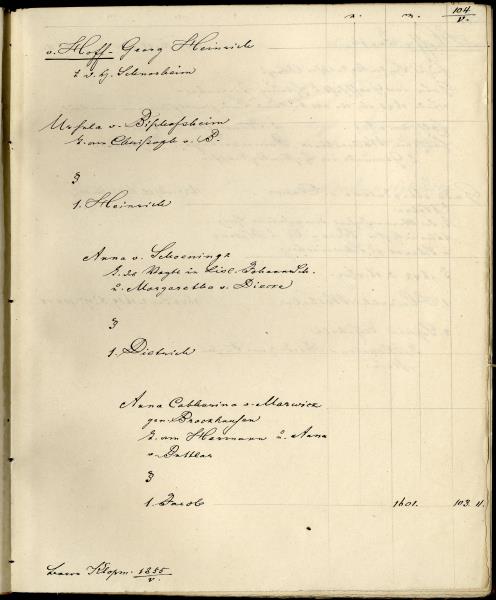 104
v.
v. Hoff - Georg Heinrich
Ursula v. Bischofsheim
T. von Christoph v. B.
3
1. Heinrich
Anna v. Schoeningk
T. des Vogts in Livl. Johann Sch.
u. Margaretha v. Diorre
3
1. Dietrich
Anna Catharina v. Marwicz
gen. Brockhausen
T. von Hermann u. Anna
v. Puttlar
3
1. Jacob 1601. 103. 11.
Klopm. 1855
v.